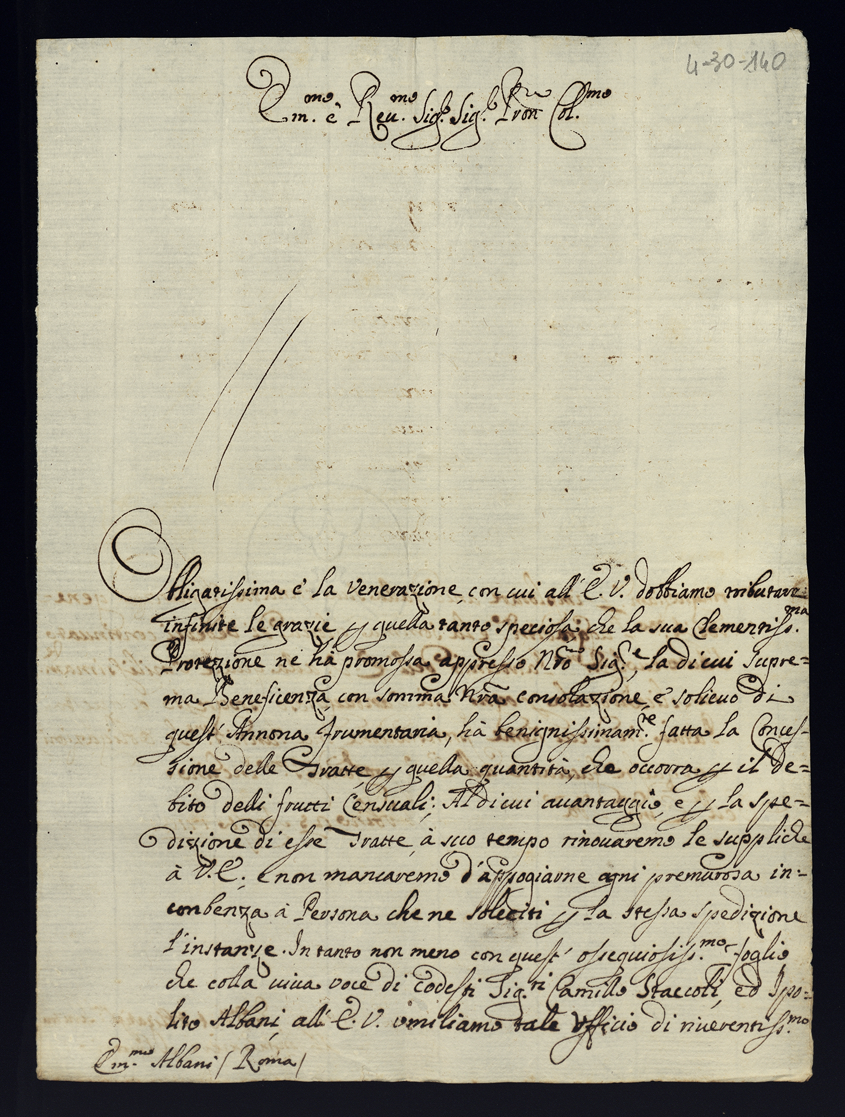 4-30-140
Em.mo è Reu.mo Sig.r Sig.r Pron Pre Col.mo
Obligatissima è la Venerazione, con cui all'E. V. dobbiamo tributare
infinite le grazie p quella tanto speciosa; che la sua Clementiss.ma
Protezione ne hà promossa appresso Nrõ Sig.e, la di cui supre=
ma Beneficenza, con somma Nrã consolazione, e solieuo di
quest'Annona frumentaria, hà benignissimam.te fatta la Conces=
sione delle Tratte p quella quantità, che occorra p il de=
bito delli frutti Censuali; Al di cui auantaggio, e p la spe=
dizione di esse Tratte, à suo tempo rinouaremo le suppliche
à V. E., e non mancaremo d'appogiarne ogni premurosa in=
conbenza à Persona che ne soleciti p la stessa spedizione
l'instanze. In tanto non meno con quest'ossequiosiss.mo foglio
che colla viua voce di codesti Sig.ri Camillo Staccoli, ed Ipo=
lito Albani, all'E. V. umiliamo tale Vfficio di riuerentiss.mo
Em.mo Albani / Roma /